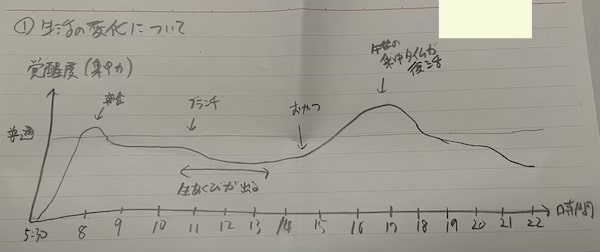 ① 生活の変化について
覚醒度(集中力)
午後の
集中タイムが
復活
朝食
ブランチ
おやつ
普通
生あくびが出る
5:30 8 9 10 11 12 13 14 15 16 17 18 19 20 21 22 時間